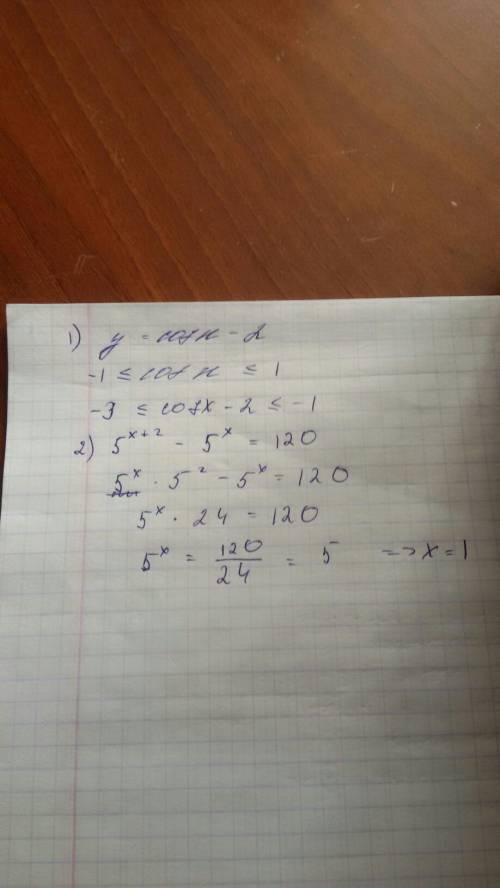 1) y = cos x - 2
-1 ≤ cos x ≤ 1
-3 ≤ cos x - 2 ≤ -1
2) 5^{x+2} - 5^x = 120
5^x · 5^2 - 5^x = 120
5^x · 24 = 120
5^x = \frac{120}{24} = 5 => x = 1